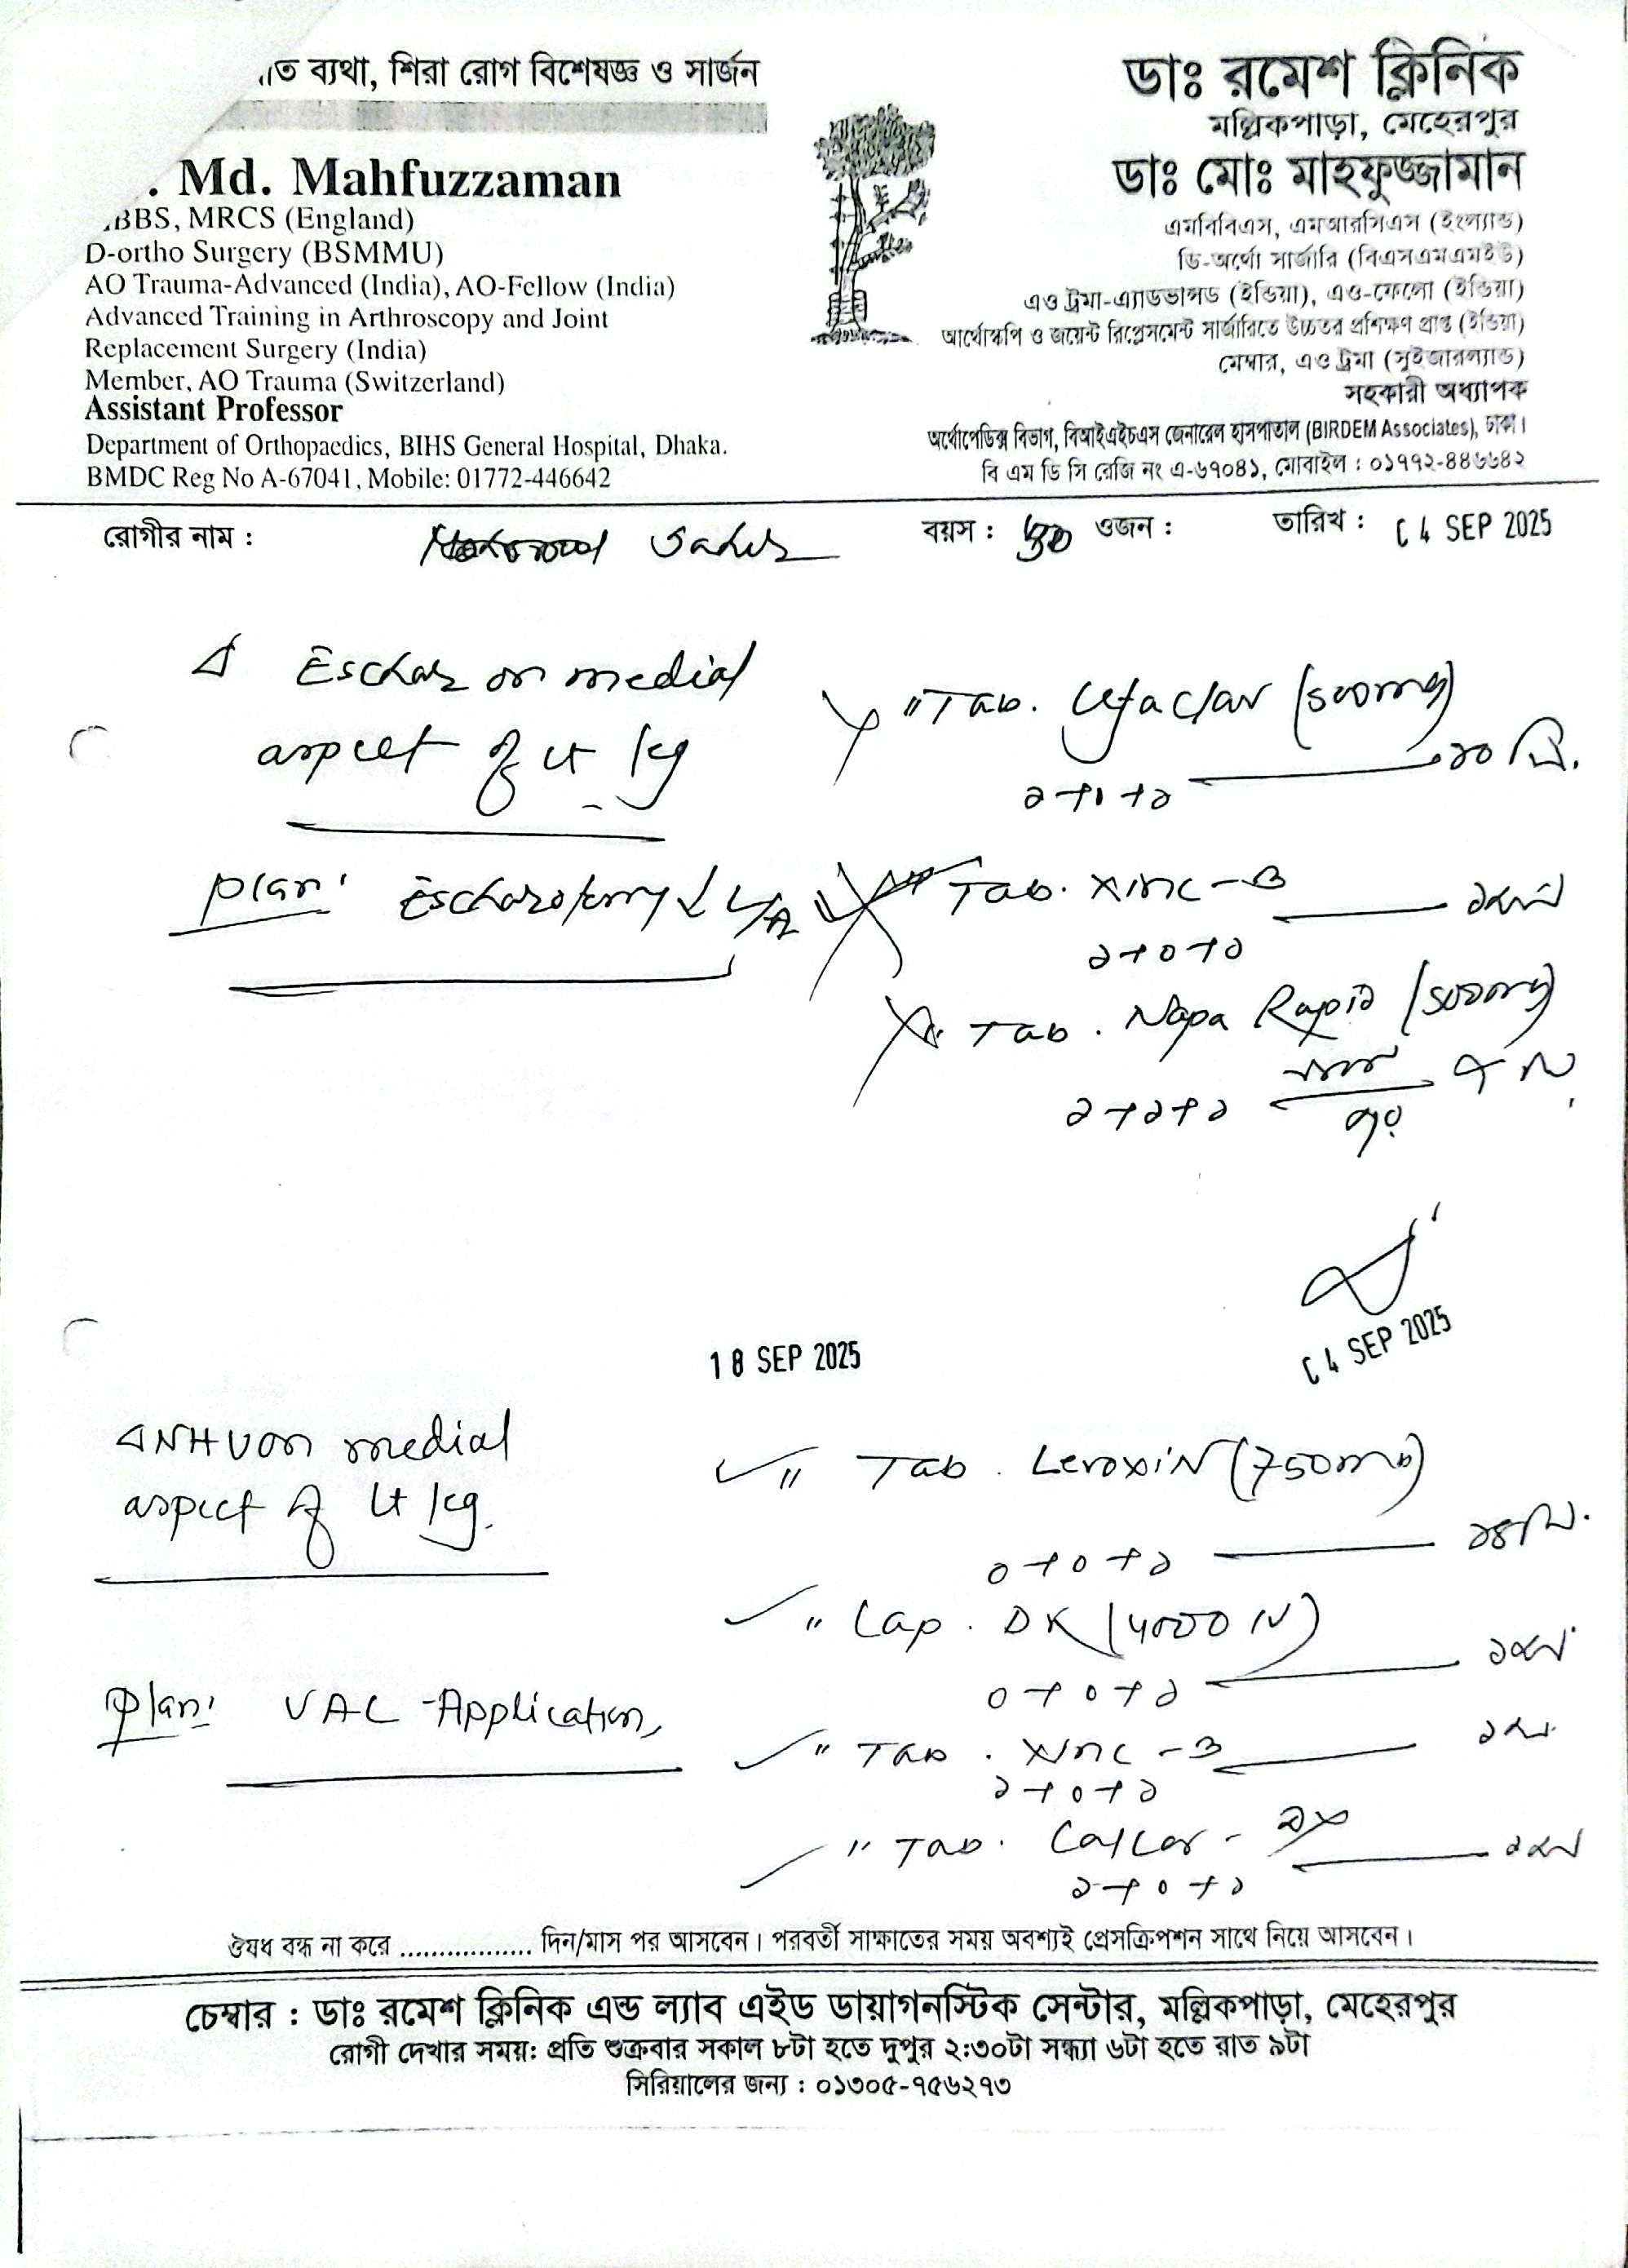 ত ব্যথা, শিরা রোগ বিশেষজ্ঞ ও সার্জন
. Md. Mahfuzzaman
BBS, MRCS (England)
D-ortho Surgery (BSMMU)
AO Trauma-Advanced (India), AO-Fellow (India)
Advanced Training in Arthroscopy and Joint
Replacement Surgery (India)
Member, AO Trauma (Switzerland)
Assistant Professor
Department of Orthopaedics, BIHS General Hospital, Dhaka.
BMDC Reg No A-67041, Mobile: 01772-446642
ডাঃ রমেশ ক্লিনিক
মল্লিকপাড়া, মেহেরপুর
ডাঃ মোঃ মাহফুজ্জামান
এমবিবিএস, এমআরসিএস (ইংল্যান্ড)
ডি-অর্থো সার্জারি (বিএসএমএমইউ)
এও ট্রমা-এ্যাডভান্সড (ইন্ডিয়া), এও-ফেলো (ইন্ডিয়া)
আর্থোস্কপি ও জয়েন্ট রিপ্লেসমেন্ট সার্জারিতে উচ্চতর প্রশিক্ষণ প্রাপ্ত (ইন্ডিয়া)
মেম্বার, এও ট্রমা (সুইজারল্যান্ড)
সহকারী অধ্যাপক
অর্থোপেডিক্স বিভাগ, বিআইএইচএস জেনারেল হাসপাতাল (BIRDEM Associates), ঢাকা।
বি এম ডি সি রেজি নং এ-৬৭০৪১, মোবাইল : ০১৭৭২-৪৪৬৬৪২
রোগীর নাম : বয়স : ওজন : তারিখ : 04 SEP 2025
Eschar on medial
aspect of Lt leg
Plan: Escharotomy L/A
Tab. Cefaclav (500mg)
১+০+১ ১০ দি.
Tab. Xinc-B
১+০+১
Tab. Napa Rapid (500mg)
১+১+১
04 SEP 2025
18 SEP 2025
NHU on medial
aspect of Lt leg.
Plan: VAC Application
Tab. Levoxin (750mg)
০+০+১ ১৪ দি.
Cap. DK (4000 IU)
০+০+১
Tab. Xinc-B
১+০+১
Tab. Calcor-DX
১+০+১
ঔষধ বন্ধ না করে ................. দিন/মাস পর আসবেন। পরবর্তী সাক্ষাতের সময় অবশ্যই প্রেসক্রিপশন সাথে নিয়ে আসবেন।
চেম্বার : ডাঃ রমেশ ক্লিনিক এন্ড ল্যাব এইড ডায়াগনস্টিক সেন্টার, মল্লিকপাড়া, মেহেরপুর
রোগী দেখার সময়: প্রতি শুক্রবার সকাল ৮টা হতে দুপুর ২:৩০টা সন্ধ্যা ৬টা হতে রাত ৯টা
সিরিয়ালের জন্য : ০১৩০৫-৭৫৬২৭৩